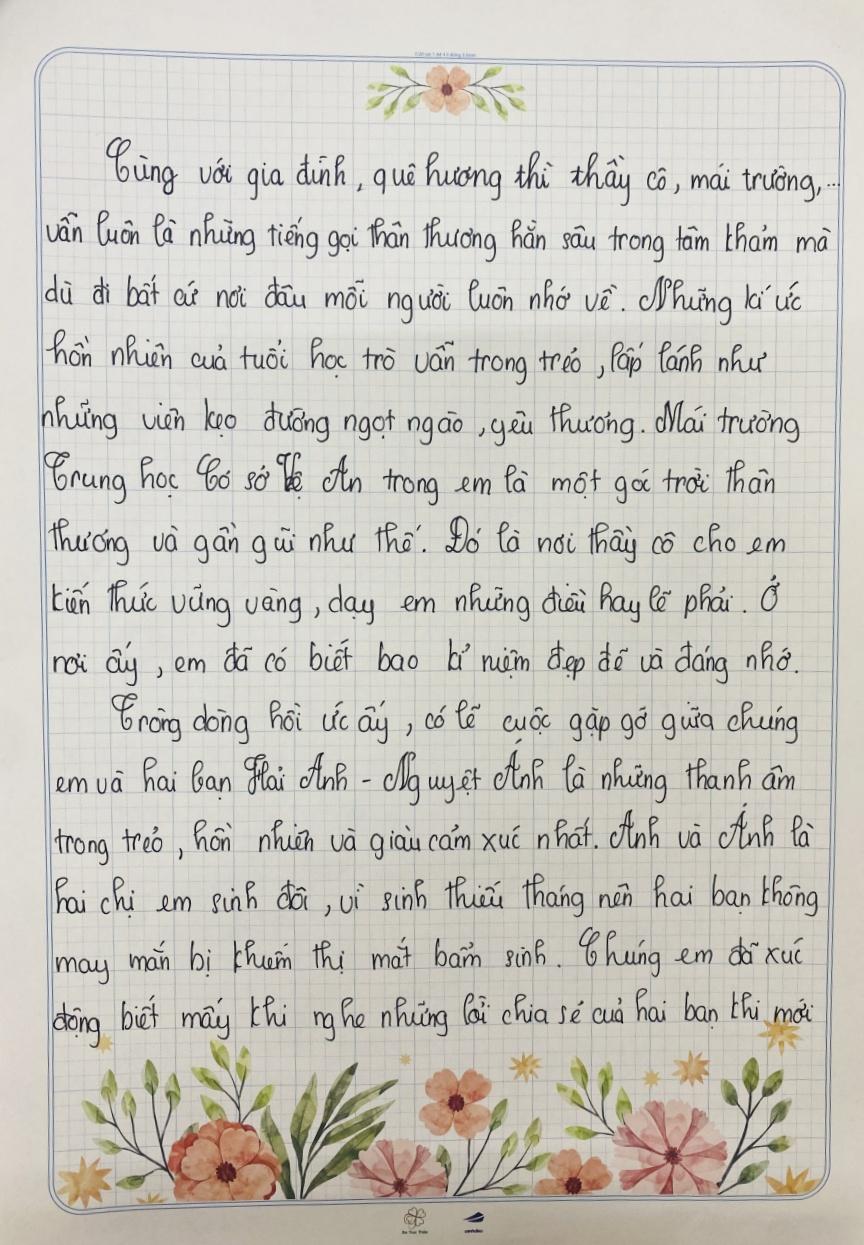 Cùng với gia đình, quê hương thì thầy cô, mái trường,...
vẫn luôn là những tiếng gọi thân thương hằn sâu trong tâm khảm mà
dù đi bất cứ nơi đâu mỗi người luôn nhớ về. Những kí ức
hồn nhiên của tuổi học trò vẫn trong trẻo, lấp lánh như
những viên kẹo đường ngọt ngào, yêu thương. Mái trường
Trung học Cơ sở Vệ An trong em là một góc trời thân
thương và gần gũi như thế. Đó là nơi thầy cô cho em
kiến thức vững vàng, dạy em những điều hay lẽ phải. Ở
nơi ấy, em đã có biết bao kỉ niệm đẹp đẽ và đáng nhớ.
Trong dòng hồi ức ấy, có lẽ cuộc gặp gỡ giữa chúng
em và hai bạn Hải Anh - Nguyệt Ánh là những thanh âm
trong trẻo, hồn nhiên và giàu cảm xúc nhất. Anh và Ánh là
hai chị em sinh đôi, vì sinh thiếu tháng nên hai bạn không
may mắn bị khiếm thị mắt bẩm sinh. Chúng em đã xúc
động biết mấy khi nghe những lời chia sẻ của hai bạn khi mới